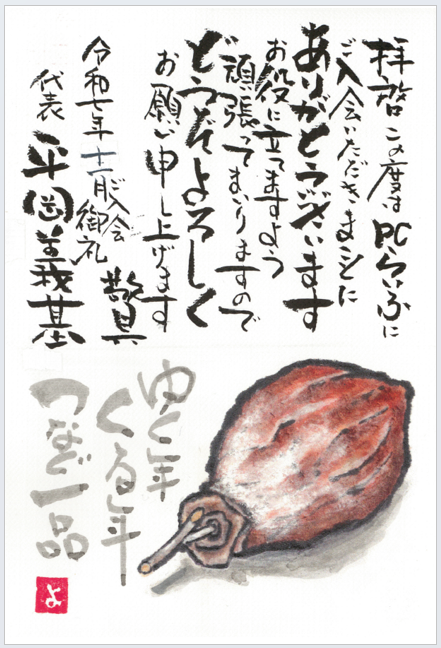 拝啓 この度は PCらいふに
ご入会いただきまことに
ありがとうございます
お役に立てますよう
頑張ってまいりますので
どうぞよろしく
お願い申し上げます
敬具
令和七年 十一月 ご入会御礼
代表 平岡義基
ゆく年
くる年
つなぐ一品
よ